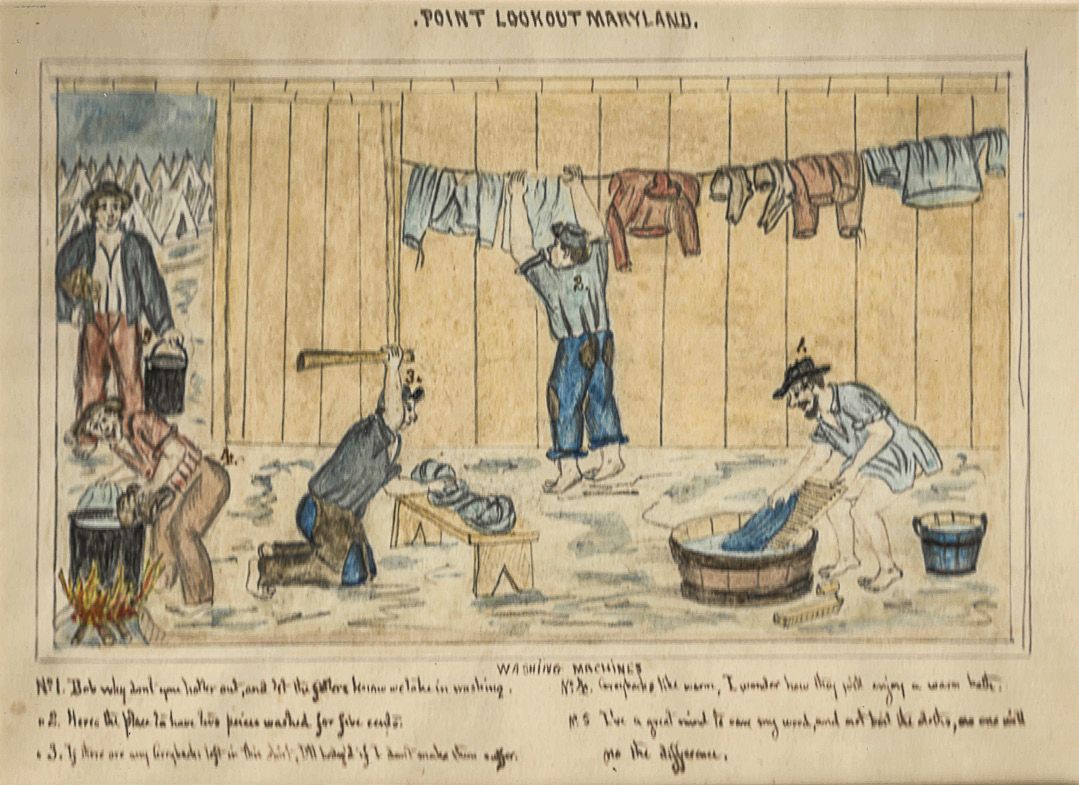 .POINT LOOKOUT MARYLAND.
2.
1.
3.
4.
WASHING MACHINES
No 1. Bob why dont you holler out, and let the fellers know we take in washing.
" 2. Heres the place to have two peices washed for five cents.
" 3. If there are any Greybacks left in this shirt, I'll be dog'd if I dont make them suffer.
No 4. Greybacks like warm, I wonder how they will enjoy a warm bath.
No 5 I've a great mind to save my wood, and not boil the cloths, no one will
no the difference.